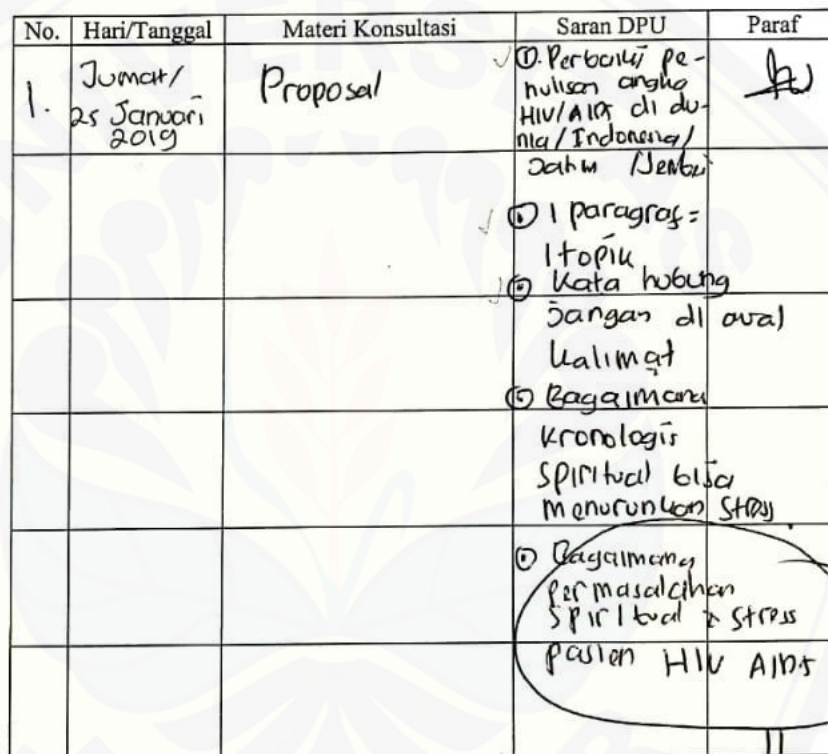 No. Hari/Tanggal Materi Konsultasi Saran DPU Paraf
1. Jumat/ 25 Januari 2019 Proposal ①. Perbaiki pe-
nulisan angka
HIV/AIDS di du-
nia/Indonesia/
Jatim /Jember
1 paragraf =
1 topik
Kata hubung
Jangan di awal
kalimat
Bagaimana
kronologis
spiritual bisa
menurunkan stress
Bagaimana
permasalahan
spiritual & stress
pasien HIV AIDS